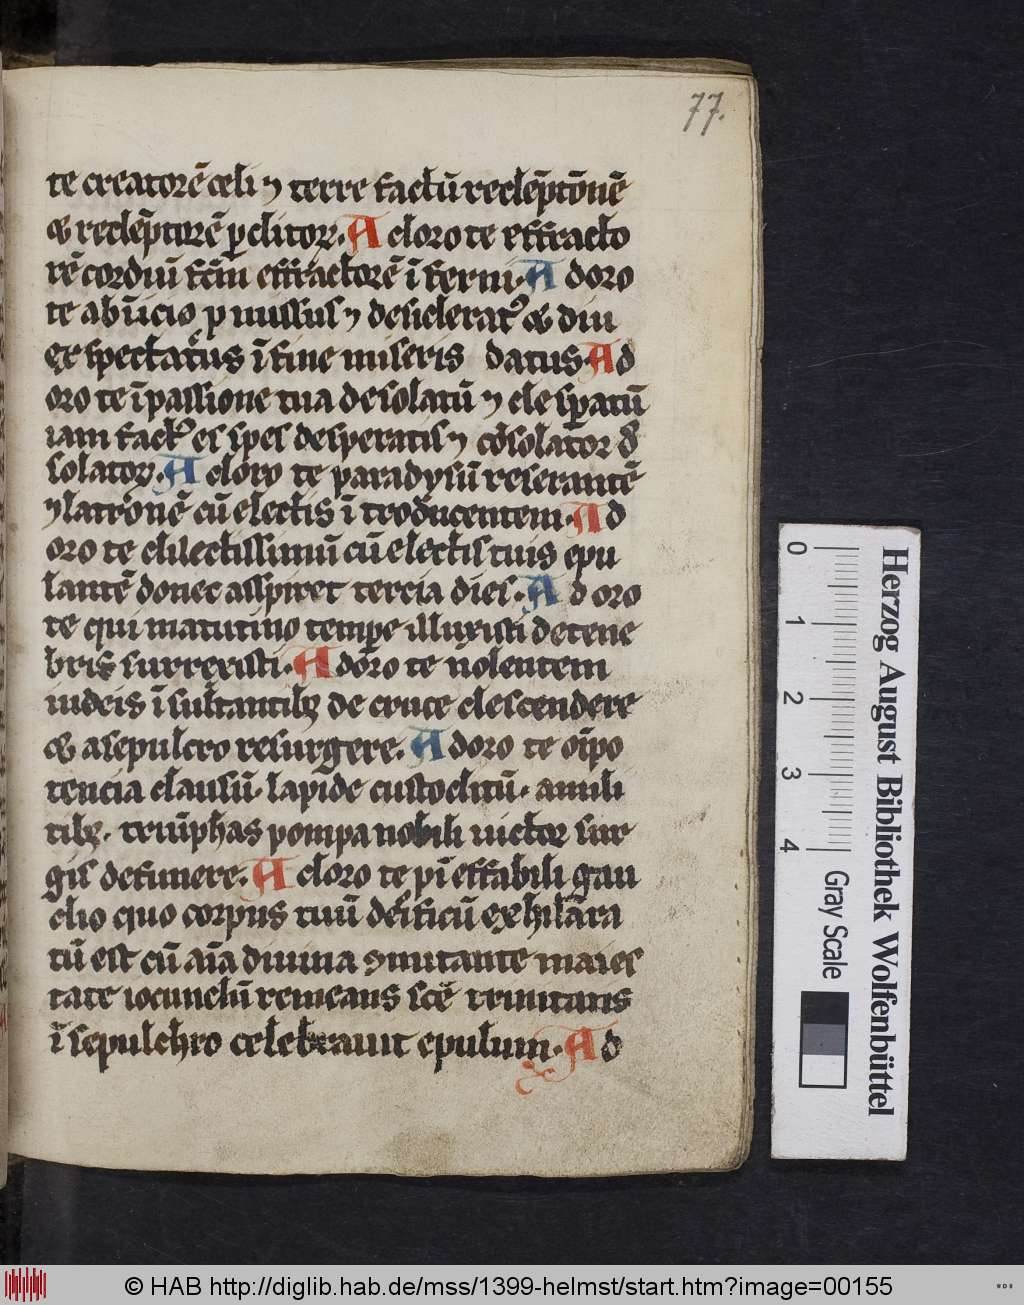 77.
te creatorē celi ⁊ terre factū redēptōnē
⁊ redēptorē ꝑditoꝝ. Adoro te effracto
rē cordiū fc̄m effractorē īferni. Adoro
te ab īicio ꝓmissus ⁊ desideratꝰ ⁊ diu
exspectatus ī fine miseris datus. Ad
oro te ī passione tua desolatū ⁊ desꝑatū
iam factꝰ es spes desperatis ⁊ cōsolator
solatoꝝ. Adoro te paradysū reserantē
⁊ latronē cū electis ītroducentem. Ad
oro te dilectissimū cū electis tuis epu
lantē donec asspiret tercia dies. Adoro
te qui matutino tempe illuxisti de tene
bris surrexisti. Adoro te nolentem
iudeis īsultantibꝫ de cruce descendere
⁊ a sepulcro resurgere. Adoro te oīpo
tencia clausū. lapide custoditū.
triūphas pompa nobili uictor sur
gis de funere. Adoro te ꝓ ī effabili gau
dio quo corpus tuū deificū exhilara
tū est cū aīa diuina ⁊ maies
tate iocundū remeans scē trinitatis
ī sepulchro celebrauit epulum. Ad
Herzog August Bibliothek Wolfenbüttel
0 1 2 3 4
Gray Scale
© HAB http://diglib.hab.de/mss/1399-helmst/start.htm?image=00155